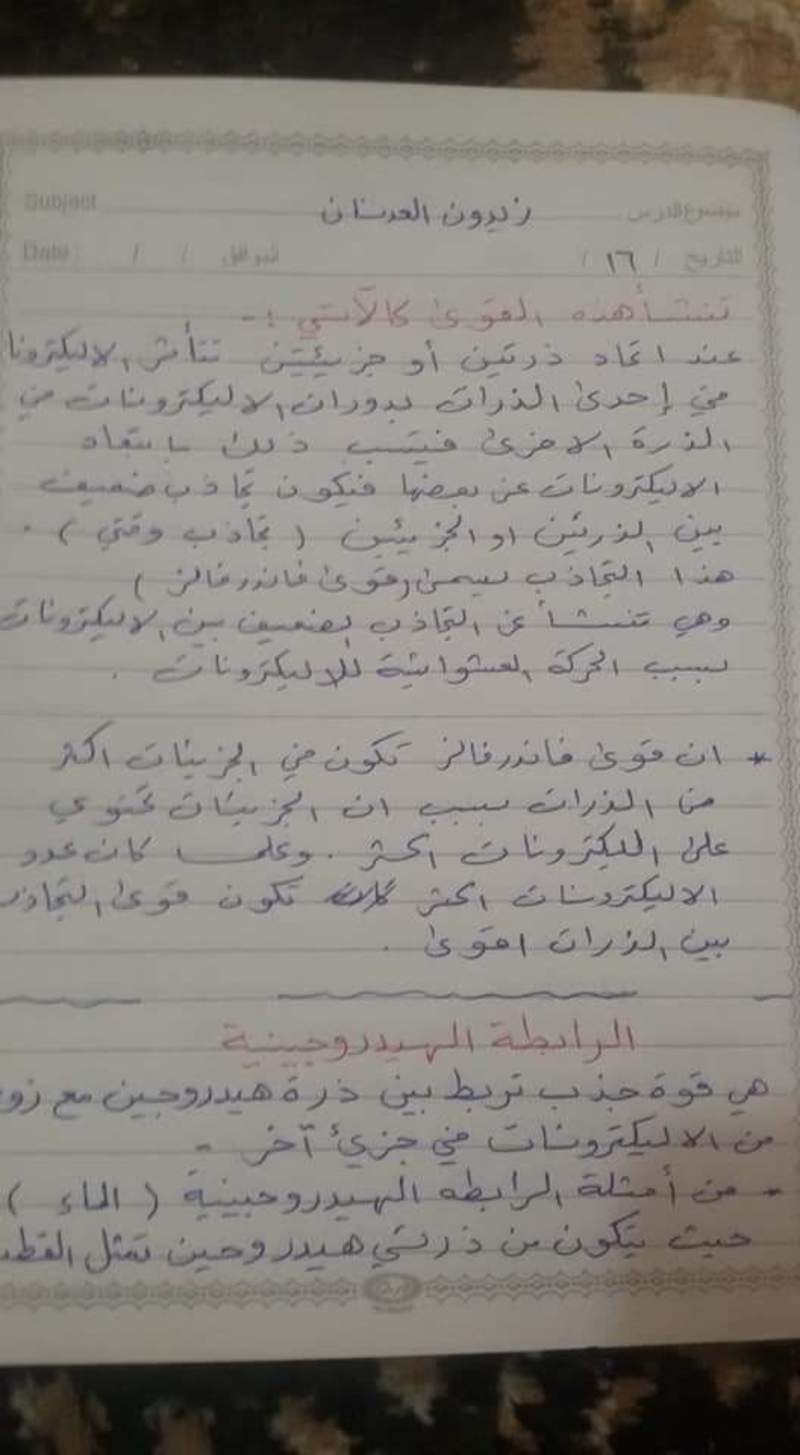 Subject موضوع الدرس زيدون العدنان
Date : / / الموافق التاريخ / ١٦ /
تنشأ هذه القوى كالآتي :-
عند اتحاد ذرتين أو جزيئتين تتأثر الاليكترونا
في إحدى الذرات بدوران الاليكترونات في
الذرة الاخرى فيتسبب ذلك بابتعاد
الاليكترونات عن بعضها فيكون تجاذب ضعيف
بين الذرتين او الجزيئين ( تجاذب وقتي ) .
هذا التجاذب يسمى (قوى فاندرفالز )
وهي تنشأ عن التجاذب الضعيف بين الاليكترونات
بسبب الحركة العشوائية للاليكترونات .
* ان قوى فاندرفالز تكون في الجزيئات اكثر
من الذرات بسبب ان الجزيئات تحتوي
على اليكترونات اكثر . وعلما كان عدد
الاليكترونات اكثر تكون قوى التجاذ
بين الذرات اقوى .
الرابطة الهيدروجينية
هي قوة جذب تربط بين ذرة هيدروجين مع زو
من الاليكترونات في جزيئ آخر -
- من أمثلة الرابطه الهيدروجينية ( الماء )
حيث يتكون من ذرتي هيدروجين تمثل القط